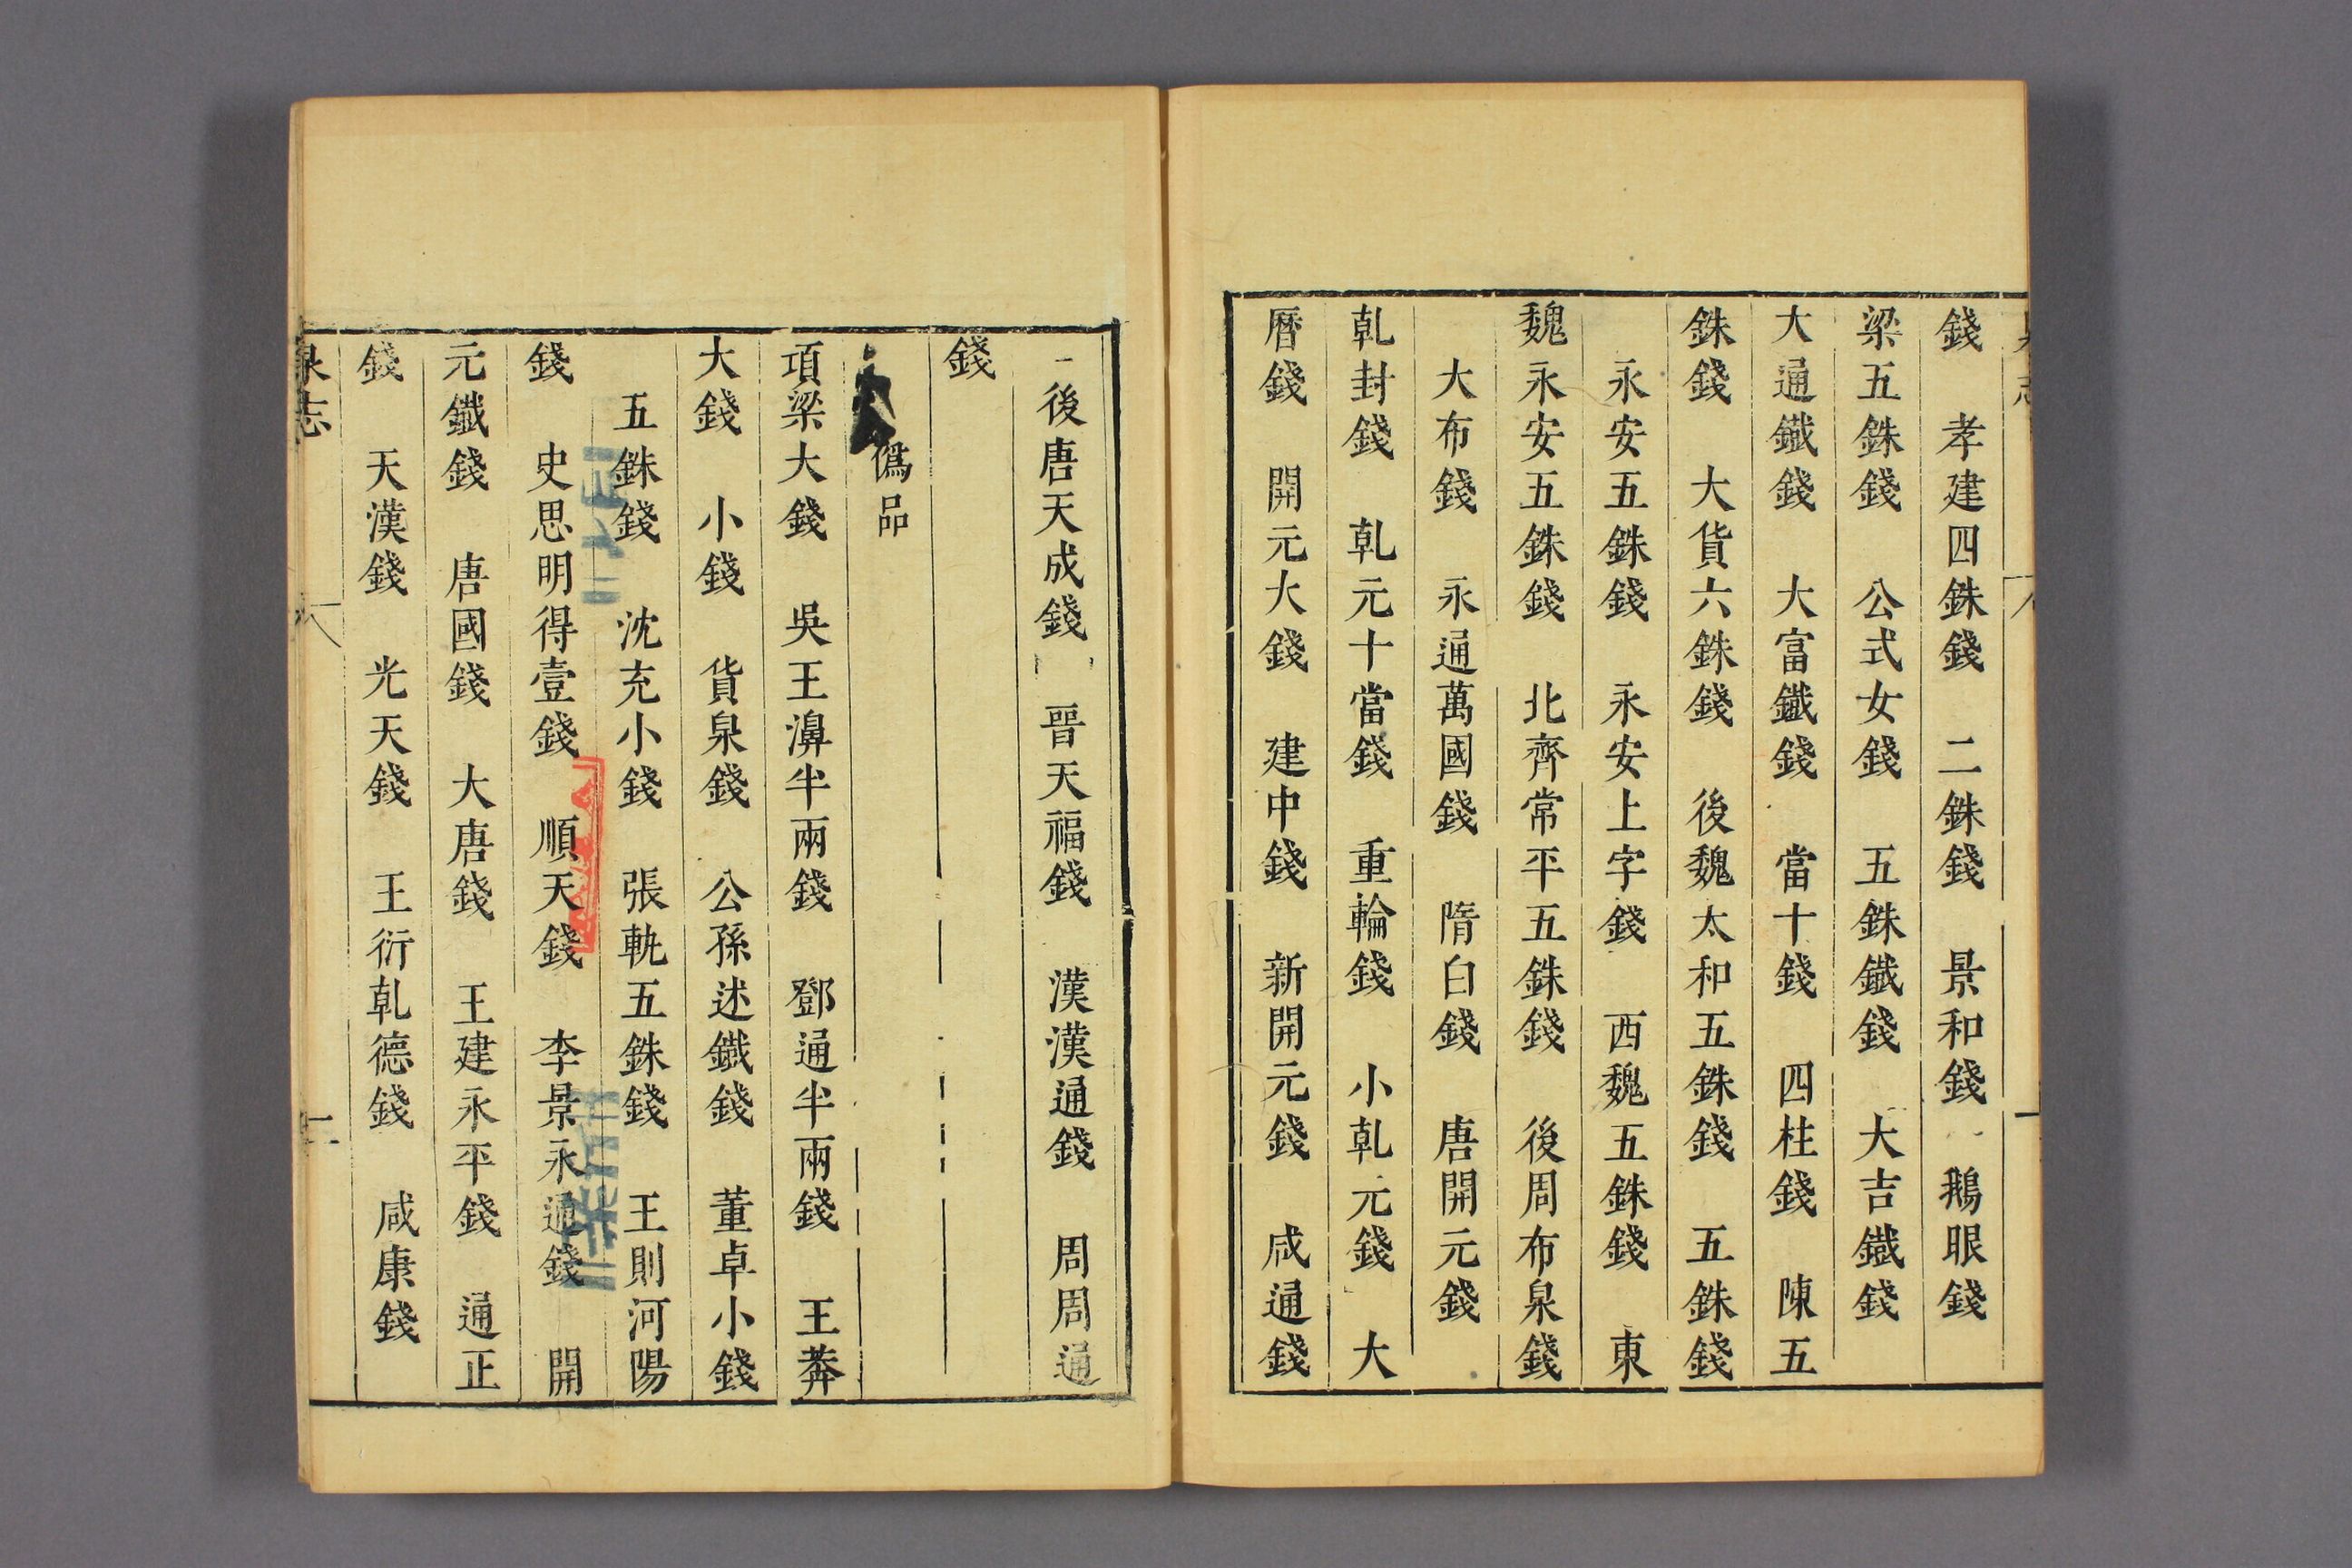 錢 孝建四銖錢 二銖錢 景和錢 鵝眼錢
梁五銖錢 公式女錢 五銖鐵錢 大吉鐵錢
大通鐵錢 大富鐵錢 當十錢 四柱錢 陳五
銖錢 大貨六銖錢 後魏太和五銖錢 五銖錢
永安五銖錢 永安上字錢 西魏五銖錢 東
魏永安五銖錢 北齊常平五銖錢 後周布泉錢
大布錢 永通萬國錢 隋白錢 唐開元錢
乹封錢 乹元十當錢 重輪錢 小乹元錢 大
曆錢 開元大錢 建中錢 新開元錢 咸通錢
後唐天成錢 晉天福錢 漢漢通錢 周周通
錢
僞品
項梁大錢 吳王濞半兩錢 鄧通半兩錢 王莽
大錢 小錢 貨泉錢 公孫述鐵錢 董卓小錢
五銖錢 沈充小錢 張軌五銖錢 王則河陽
錢 史思明得壹錢 順天錢 李景永通錢 開
元鐵錢 唐國錢 大唐錢 王建永平錢 通正
錢 天漢錢 光天錢 王衍乹德錢 咸康錢
泉志